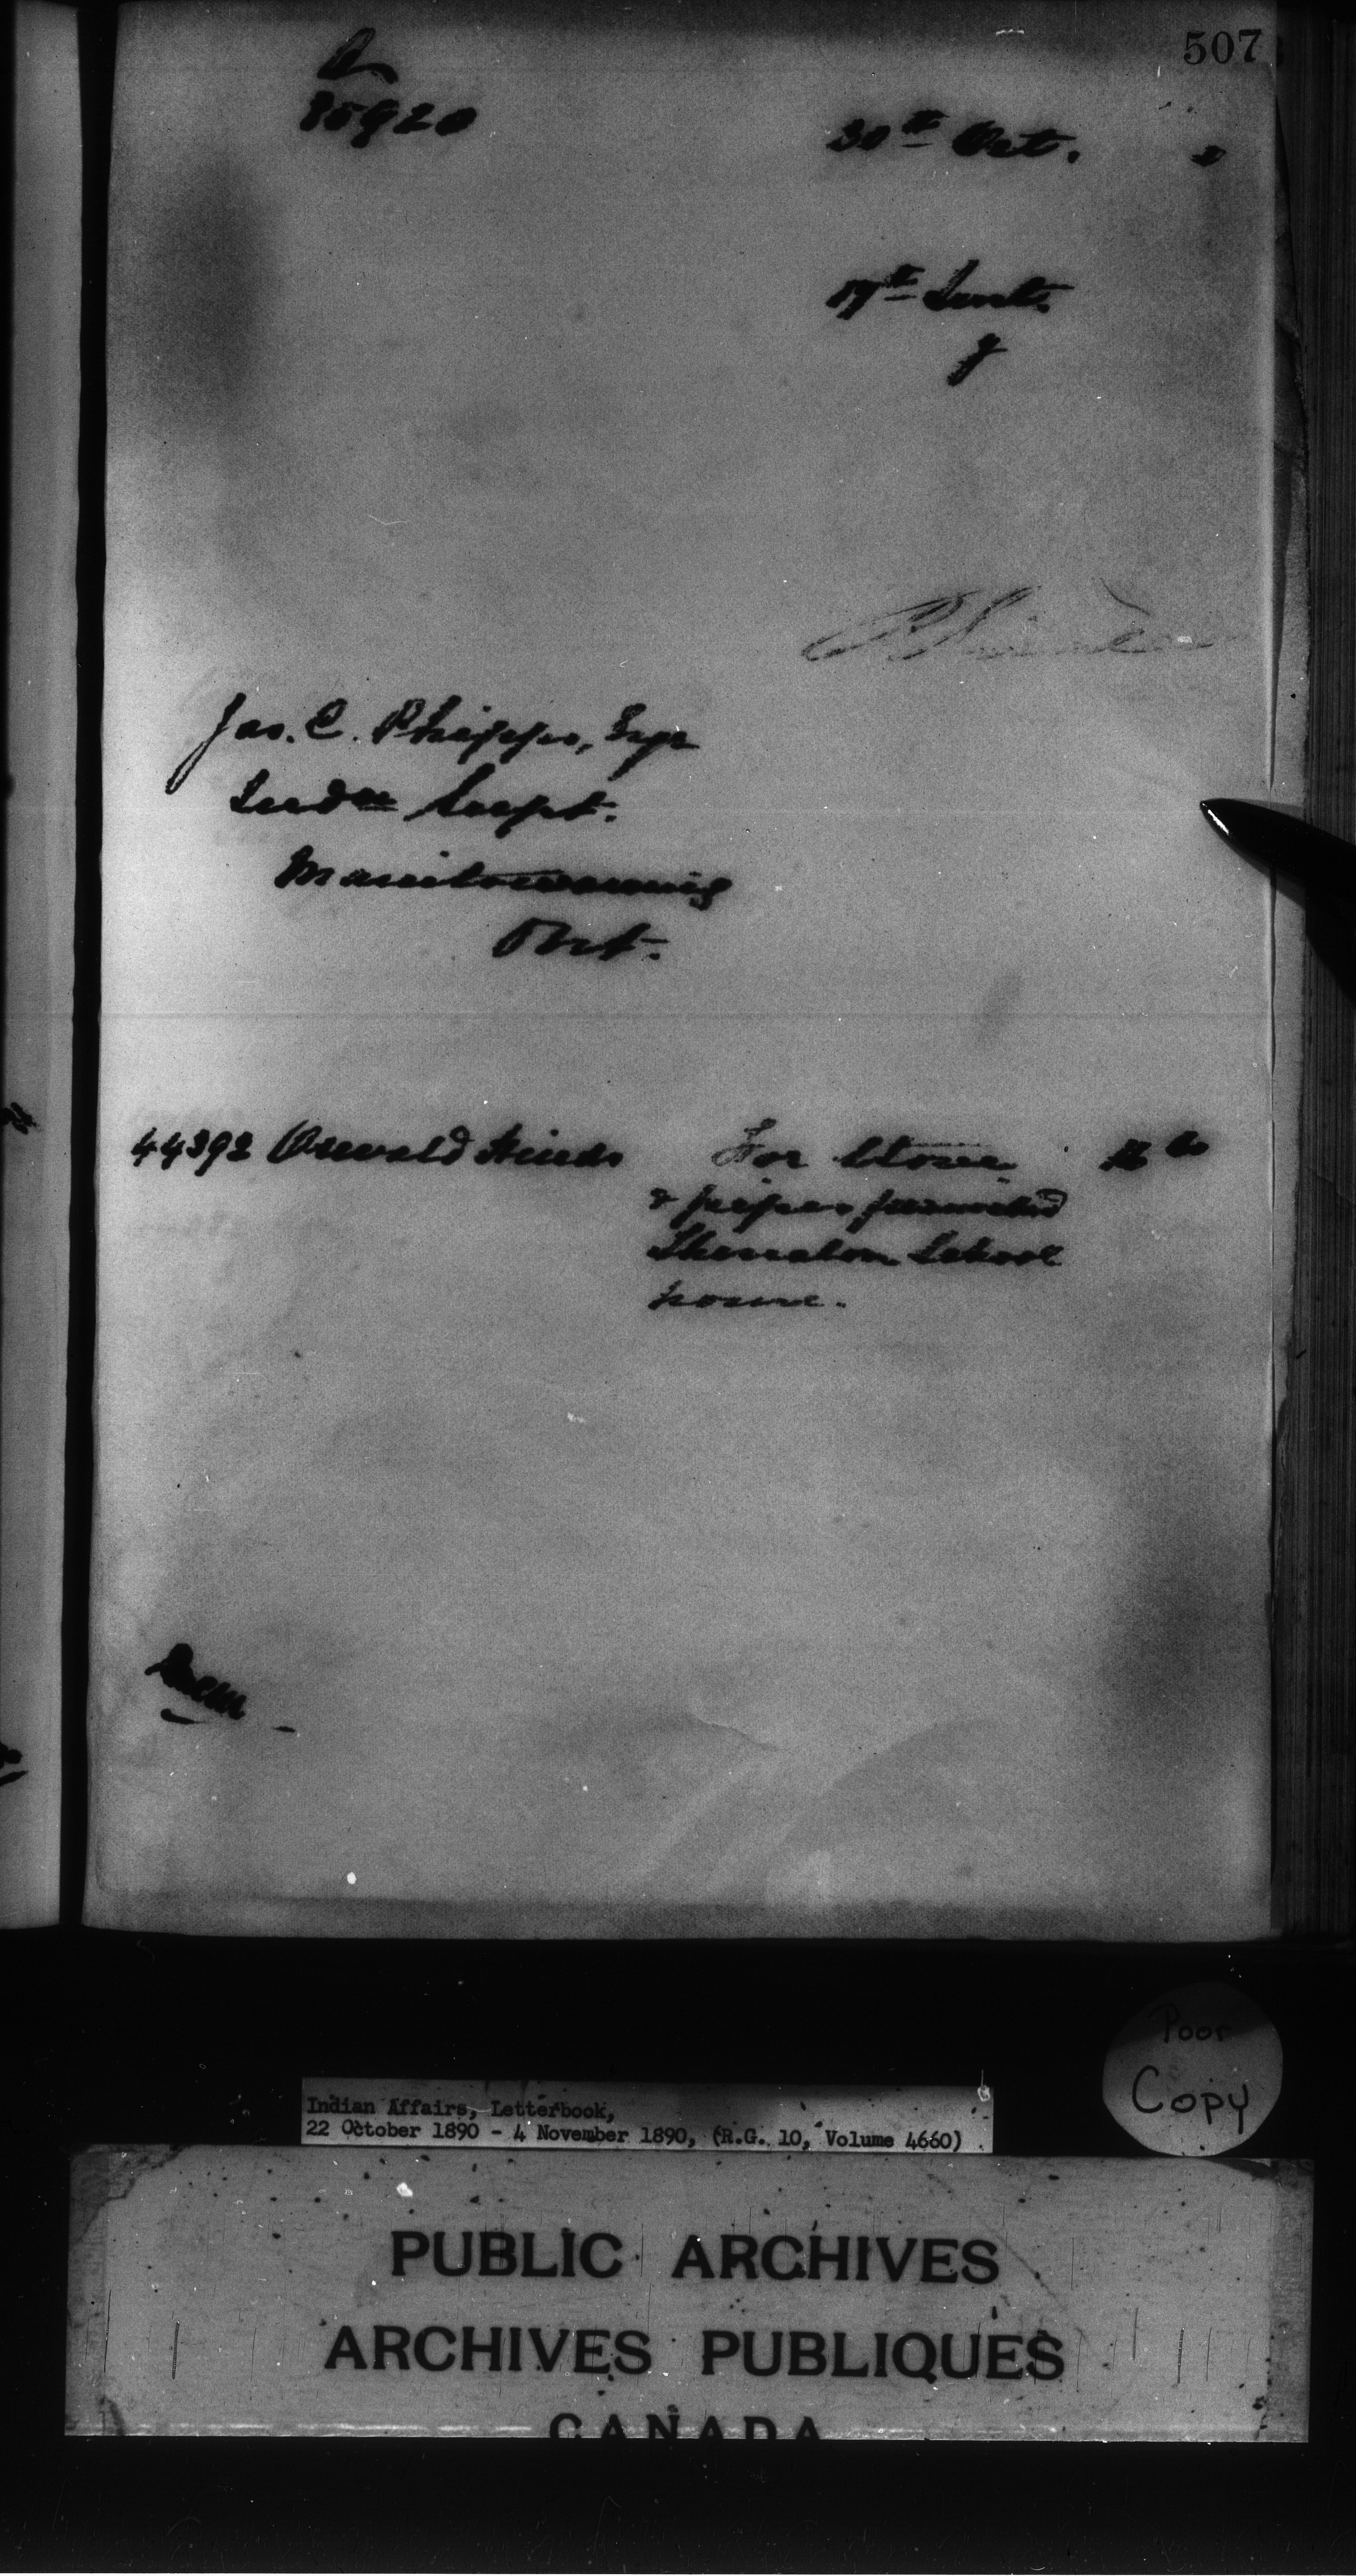 507
85920
30th Oct. 0
17th Inst.
y
R Sinclair
Jas. C. Phipps, Esqr
Indn Supt.
Manitowaning
Ont.
44392 Oswald Hinds For Stove
& pipes furnished
Sheraton School
house.
Poor
Copy
Indian Affairs, Letterbook,
22 October 1890 - 4 November 1890, (R.G. 10, Volume 4660)
PUBLIC ARCHIVES
ARCHIVES PUBLIQUES
CANADA